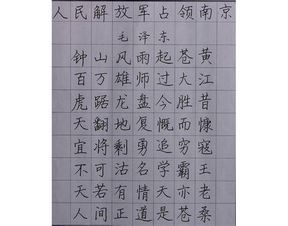 人民解放军占领南京
毛泽东
钟山风雨起苍黄
百万雄师过大江
虎踞龙盘今胜昔
天翻地复慨而慷
宜将剩勇追穷寇
不可沽名学霸王
天若有情天亦老
人间正道是苍桑